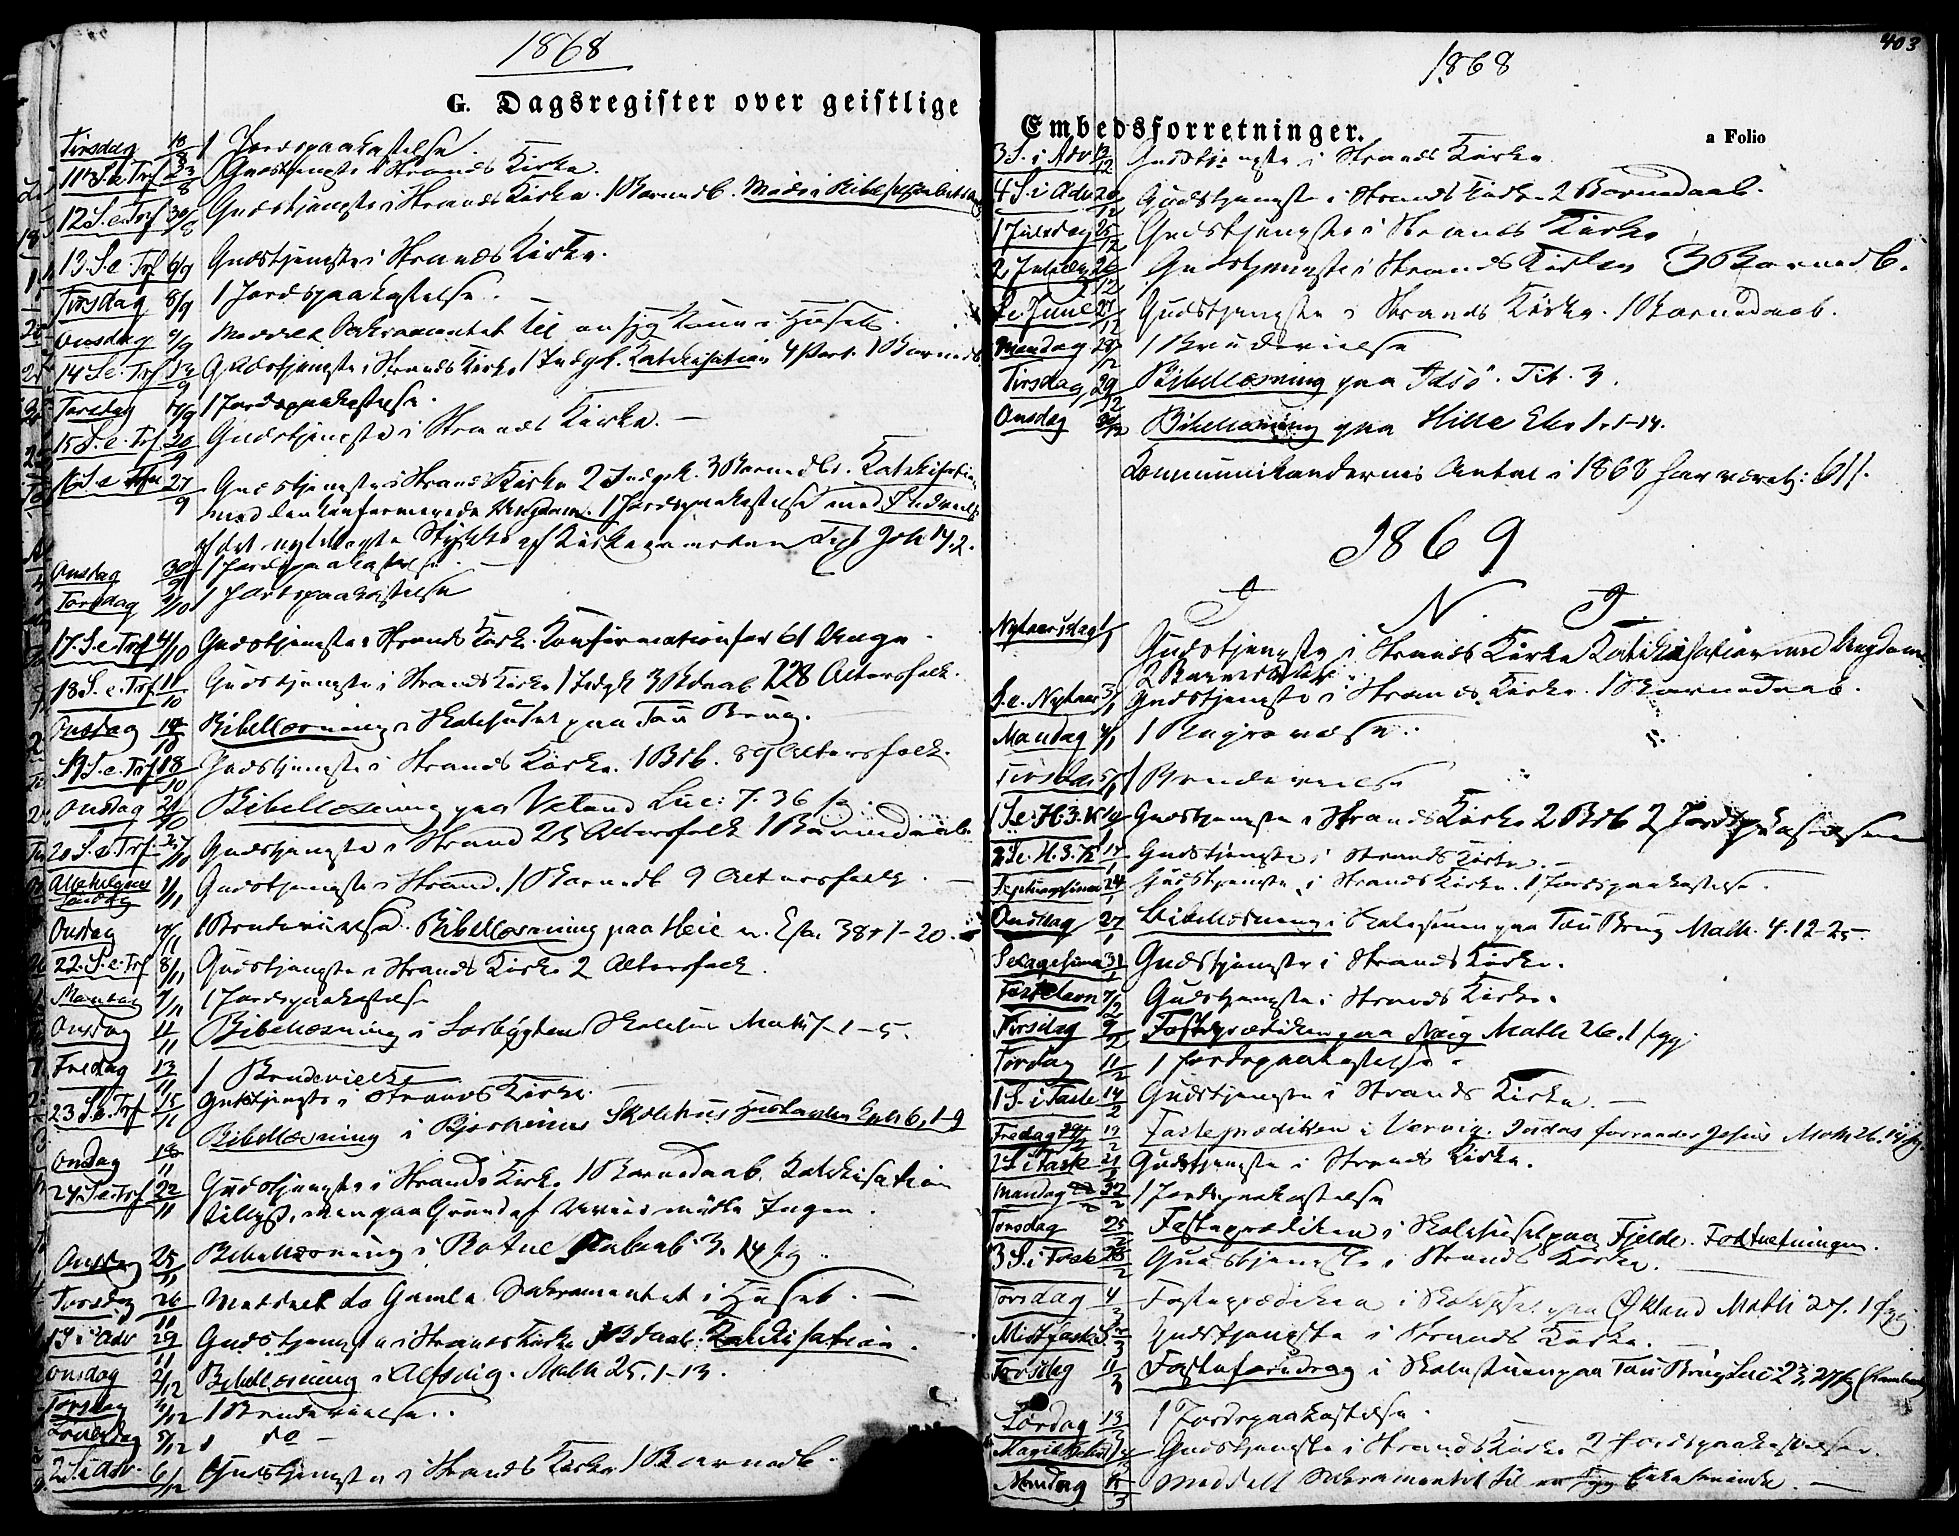 1868
G. Dagsregister over geistlige
Tirsdag 18/8 1 Jordspaakastelse.
11te S. e. Trf 23/8 Gudstjeneste i Strands Kirke.
12 S. e. Trf 30/8 Gudstjeneste i Strands Kirke. 1 Barnedb.
13. S. e. Trf 6/9 Gudstjeneste i Strands Kirke.
Tirsdag 8/9 1 Jordspaakastelse.
Onsdag 9/9 Meddelt Sakramentet til en syg Kone i Huset.
14 S. e. Trf 13/9 Gudstjeneste i Strands Kirke 1 Indgk. Katekisation 1 Barnedb
Torsdag 17/9 1 Jordspaakastelse.
15 S. e. Trf 20/9 Gudstjeneste i Strands Kirke. —
16 S. e. Trf 27/9 Gudstjeneste i Strands Kirke 2 Indgk. 3 Barnedb. Katekisation
med den konfirmerede Ungdom. 1 Jordspaakastelse med Indvielse
af det nylagte Stykke af Kirkegaarden Text Joh 14.2.
Onsdag 30/9 1 Jordspaakastelse. —
Torsdag /10 1 Jordspaakastelse
17. S. e. Trf 4/10 Gudstjeneste i Strands Kirke. Konfirmation for 61 Unge.
18 S. e. Trf 11/10 Gudstjeneste i Strands Kirke 1 Indgk 3 Bdaab 228 Altersfolk.
Onsdag 14/10 Bibellæsning i Skolehuset paa Tau Brug.
19 S. e. Trf 18/10 Gudstjeneste i Strands Kirke. 1 Brb. 89 Altersfolk.
Onsdag 21/10 Bibellæsning paa Veland Luc: 7. 36 fg.
20 S. e. Trf /10 Gudstjeneste i Strand 25 Altersfolk 1 Barnedaab
Allehelgens Søndag 1/11 Gudstjeneste i Strand. 1 Barnedb 9 Altersfolk. —
Onsdag 4/11 1 Brudevielse. Bibellæsning paa Heie Esa. 38 v 1-20.
22. S. e. Trf 8/11 Gudstjeneste i Strands Kirke 2 Altersfolk.
Mandag 9/11 1 Jordspaakastelse
Onsdag 11/11 Bibellæsning i Sørbygdens Skolehus Math 7-1-5.
Fredag 13/11 1 Brudevielse
23 S. e. Trf 15/11 Gudstjeneste i Strands Kirke.
Onsdag 18/11 Bibellæsning i Bjørheims Skolehus Eph 6, 1-9
24. S. e. Trf 22/11 Gudstjeneste i Strands Kirke 1 Barnedaab. Katekisation
tillyst, men paa Grund af Veiret mødte Ingen.
Onsdag 25/11 Bibellæsning i Botne 3. 14 fg.
Torsdag 26/11 Meddelt to Gamle Sakramentet i Huset. —
1 S i Adv 29/11 Gudstjeneste i Strands Kirke Bdaab. Katekisation.
Onsdag 2/12 Bibellæsning i Alsvig. Math 25. 1-13.
Torsdag /12 1 Brudevielse.
Lørdag 5/12 1 do —
2 S. i Adv. 6/12 Gudstjeneste i Strands Kirke 1 Barnedb.
403
1868
Embedsforretninger.
a Folio
3. S. i Adv 13/12 Gudstjeneste i Strands Kirke
4 S. i Adv 20/12 Gudstjeneste i Strands Kirke 2 Barnedaab.
1 Juledag 25/12 Gudstjeneste i Strands Kirke
2 Juledag 26/12 Gudstjeneste i Strands Kirke 3 Barnedb.
S. e. Jule 27/12 Gudstjeneste i Strands Kirke. 1 Barnedaab.
Mandag 28/12 1 Brudevielse
Tirsdag 29/12 Bibellæsning paa Idsø. Tit. 3.
Onsdag 30/12 Bibellæsning paa Hille Ebr 1. 1-14.
Kommunikandernes Antal i 1868 har været: 611.
1869
I. N. J.
Nytaarsdag 1/1 Gudstjeneste i Strands Kirke Katekisation med Ungdom
2 Barnedaab.
S. e. Nytaar 3/1 Gudstjeneste i Strands Kirke. 1 Barnedaab.
Mandag 4/1
Tirsdag 5/1 1 Brudevielse
1 S. e. H. 3. K 10/1 Gudstjeneste i Strands Kirke 2 Brb 2 Jordspaakastelser
2 S. e. H. 3. K 17/1 Gudstjeneste i Strands Kirke. —
Septuagesima 24/1 Gudstjeneste i Strands Kirke. 1 Jordspaakastelse.
Onsdag 27/1 Bibellæsning i Skolestuen paa Tau Brug Math. 4. 12-25.
Sexagesima 31/1 Gudstjeneste i Strands Kirke.
Fastelavn 7/2 Gudstjeneste i Strands Kirke.
Tirsdag 9/2 Fasteprædiken paa Nag Math 26. 1 fgg.
Torsdag 11/2 1 Jordspaakastelse.
1 S. i Faste 14/2 Gudstjeneste i Strands Kirke. —
Fredag 19/2 Fasteprædiken i Vervig. Judas forraader Jesus Math 26. 14 fg.
2 S. i Faste 21/2 Gudstjeneste i Strands Kirke.
Mandag 22/2 1 Jordspaakastelse
Torsdag 25/2 Fasteprædiken i Skolehuset paa Fjelde. Fodtvetningen.
3 S. i Faste 28/2 Gudstjeneste i Strands Kirke. —
Torsdag 4/3 Fasteprædiken i Skolehuset paa Øklund Math 27. 1 fgg.
Midfaste S. /3 Gudstjeneste i Strands Kirke.
Torsdag 11/3 Fasteforedrag i Skolestuen paa Tau Brug Luc 23. 27 fg
Lørdag 13/3 1 Jordspaakastelse.
Mariæ Beb 14/3 Gudstjeneste i Strands Kirke 2 Jordspaakastelser.
Mandag 15/3 Meddelt Sakramentet til en syg —